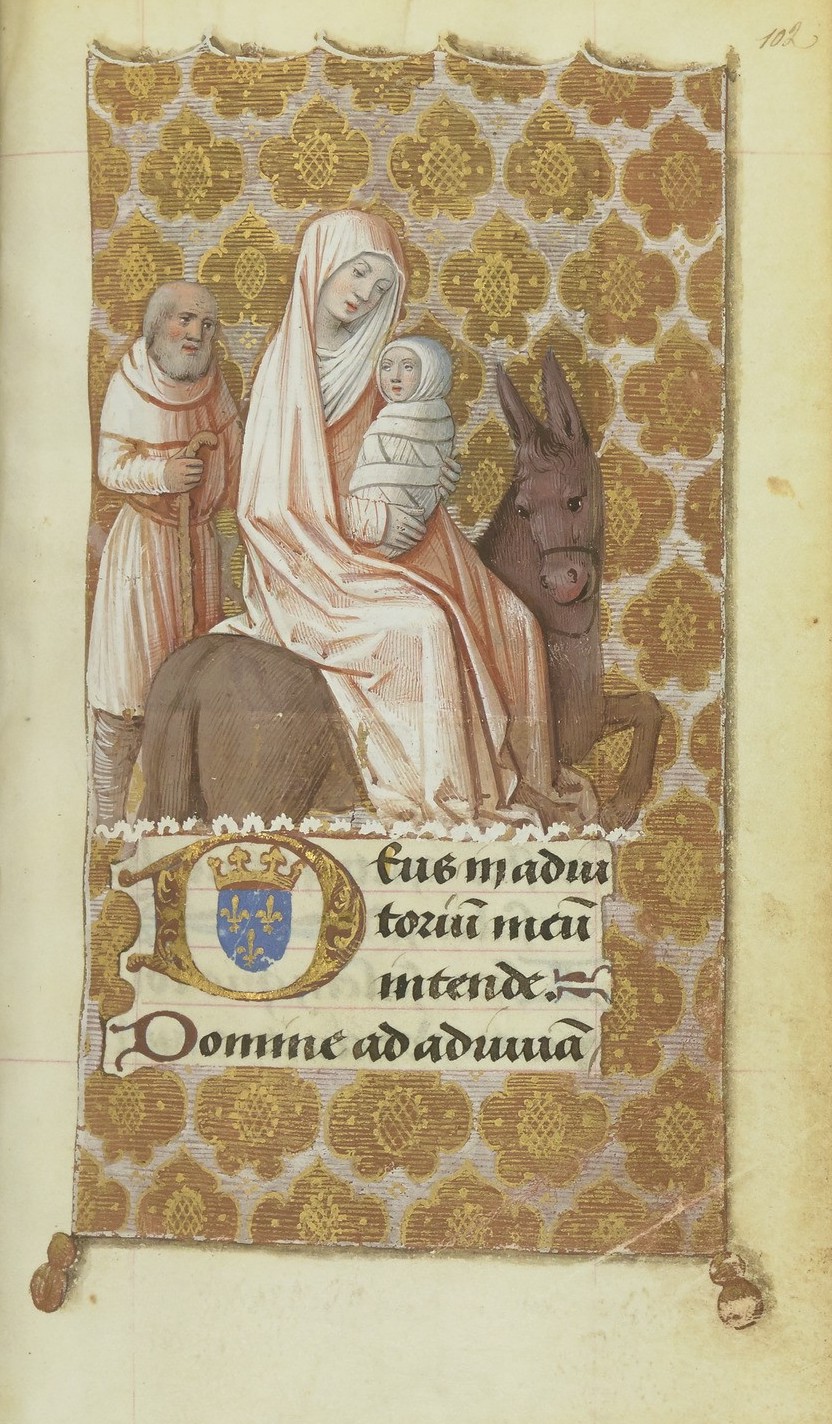 102
Deus in adiu
toriū meū
intende. R
Domine ad adiuuā